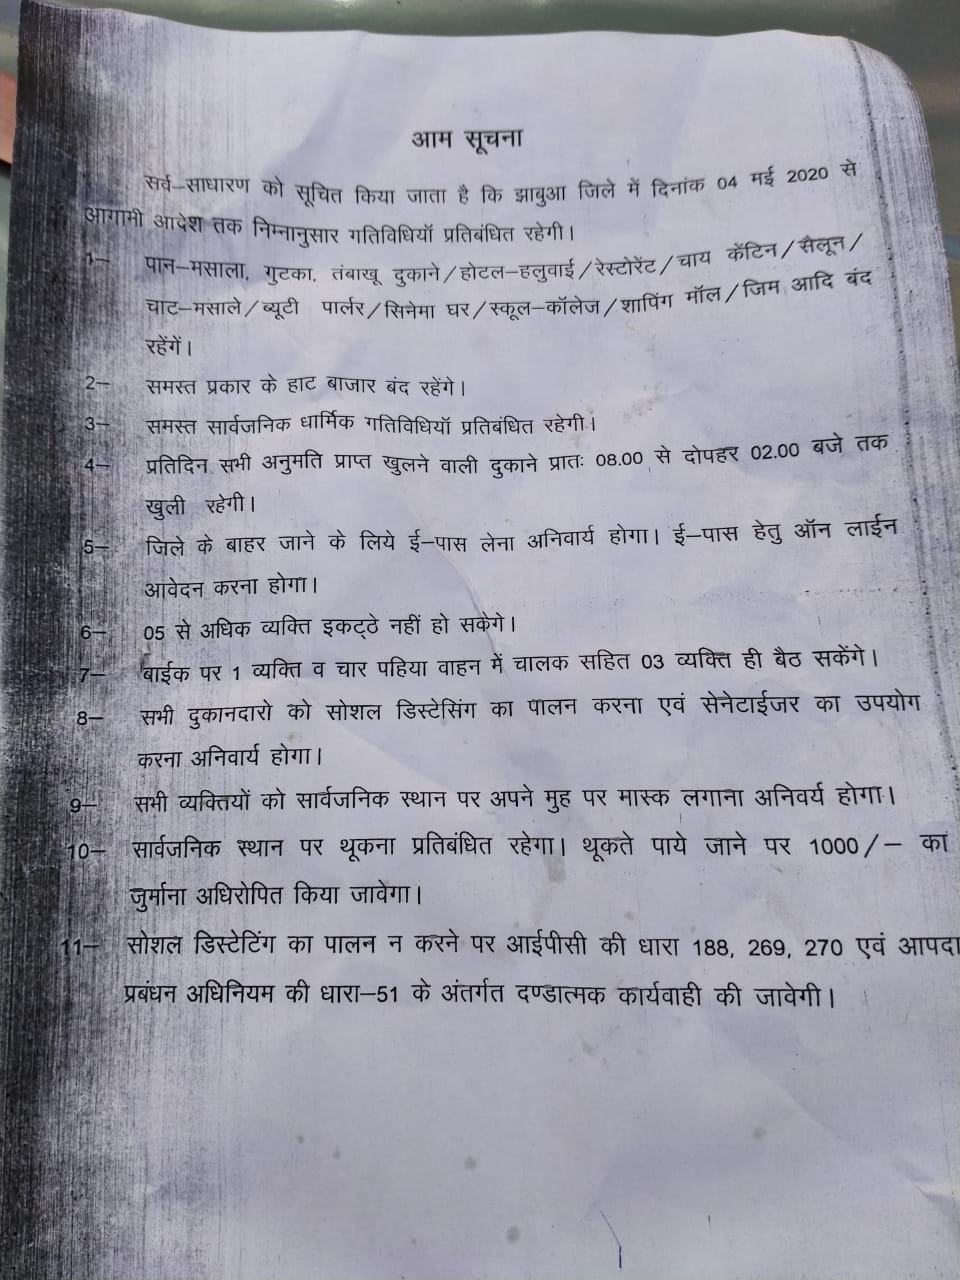 आम सूचना
सर्व–साधारण को सूचित किया जाता है कि झाबुआ जिले में दिनांक 04 मई 2020 से
आगामी आदेश तक निम्नानुसार गतिविधियॉ प्रतिबंधित रहेगी।
1– पान–मसाला, गुटका, तंबाखू दुकाने/होटल–हलुवाई/रेस्टोरेंट/चाय केंटिन/सैलून/
चाट–मसाले/ब्यूटी पार्लर/सिनेमा घर/स्कूल–कॉलेज/शापिंग मॉल/जिम आदि बंद
रहेंगें।
2– समस्त प्रकार के हाट बाजार बंद रहेंगे।
3– समस्त सार्वजनिक धार्मिक गतिविधियॉ प्रतिबंधित रहेगी।
4– प्रतिदिन सभी अनुमति प्राप्त खुलने वाली दुकाने प्रातः 08.00 से दोपहर 02.00 बजे तक
खुली रहेगी।
5– जिले के बाहर जाने के लिये ई–पास लेना अनिवार्य होगा। ई–पास हेतु ऑन लाईन
आवेदन करना होगा।
6– 05 से अधिक व्यक्ति इकट्ठे नहीं हो सकेगे।
7– बाईक पर 1 व्यक्ति व चार पहिया वाहन में चालक सहित 03 व्यक्ति ही बैठ सकेंगे।
8– सभी दुकानदारो को सोशल डिस्टेसिंग का पालन करना एवं सेनेटाईजर का उपयोग
करना अनिवार्य होगा।
9– सभी व्यक्तियों को सार्वजनिक स्थान पर अपने मुह पर मास्क लगाना अनिवर्य होगा।
10– सार्वजनिक स्थान पर थूकना प्रतिबंधित रहेगा। थूकते पाये जाने पर 1000/– का
जुर्माना अधिरोपित किया जावेगा।
11– सोशल डिस्टेटिंग का पालन न करने पर आईपीसी की धारा 188, 269, 270 एवं आपदा
प्रबंधन अधिनियम की धारा–51 के अंतर्गत दण्डात्मक कार्यवाही की जावेगी।